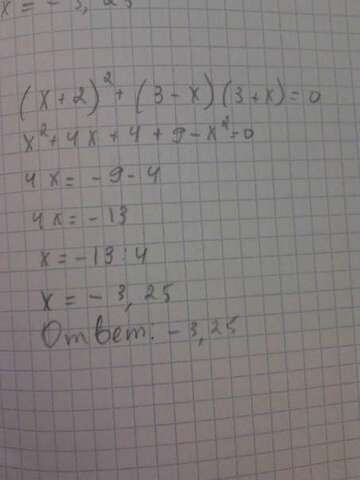 x = - 3, 25
(x+2)² + (3-x)(3+x)=0
x²+4x+4+9-x²=0
4x= -9-4
4x=-13
x=-13:4
x = - 3, 25
Ответ. -3,25